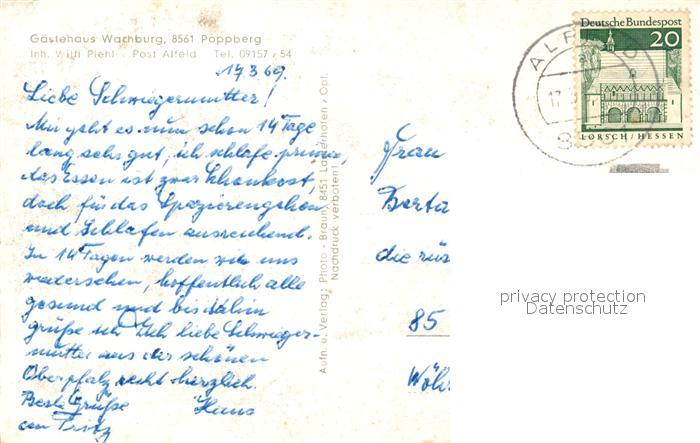 Gästehaus Wachburg, 8561 Poppberg
Inh. Willi Piehl · Post Alfeld Tel. 09157 / 54
17.3.69.
Liebe Schwiegermutter!
Mir geht es nun schon 14 Tage
lang sehr gut, ich schlafe prima,
das Essen ist zwar Schonkost,
doch für das Spazierengehen
und Schlafen ausreichend.
In 14 Tagen werden wir uns
wiedersehen, hoffentlich alle
gesund und bis dahin
grüße ich Dich liebe Schwieger-
mutter aus der schönen
Oberpfalz recht herzlich.
Beste Grüße Hans
an Fritz
Aufn. u. Verlag: Photo - Braun, 8451 Lauterhofen / Opf.
Nachdruck verboten
Deutsche Bundespost
20
LORSCH / HESSEN
ALF
17.
Frau
Berta
die rüs
85
Wöhr
privacy protection
Datenschutz